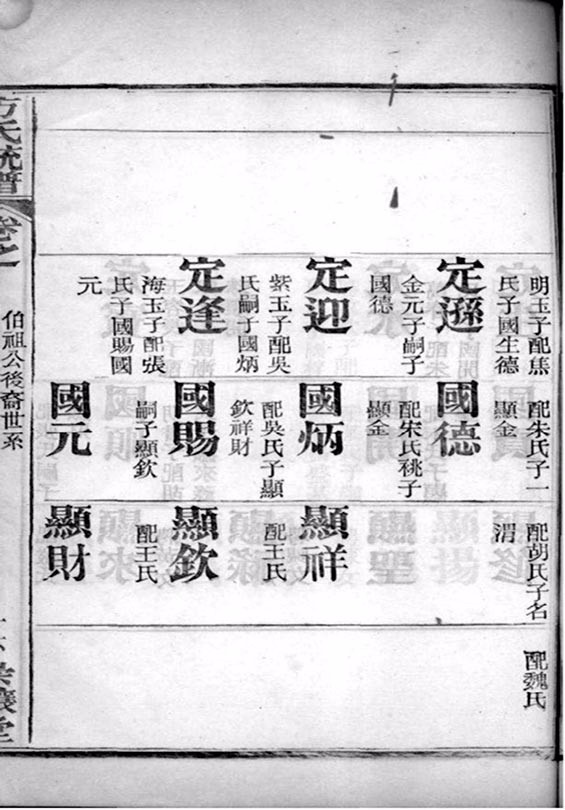 明玉子配焦
氏子國生德
定遜
金元子嗣子
國德
定迎
紫玉子配吳
氏嗣子國炳
定逢
海玉子配張
氏子國賜國
元
配朱氏子一
顯金
國德
配宋氏祧子
顯金
國炳
配吳氏子顯
欽祥財
國賜
嗣子顯欽
國元
配胡氏子名
渭
顯祥
配王氏
顯欽
配王氏
顯財
配魏氏
方氏統譜
卷之一
伯祖公後裔世系
堂